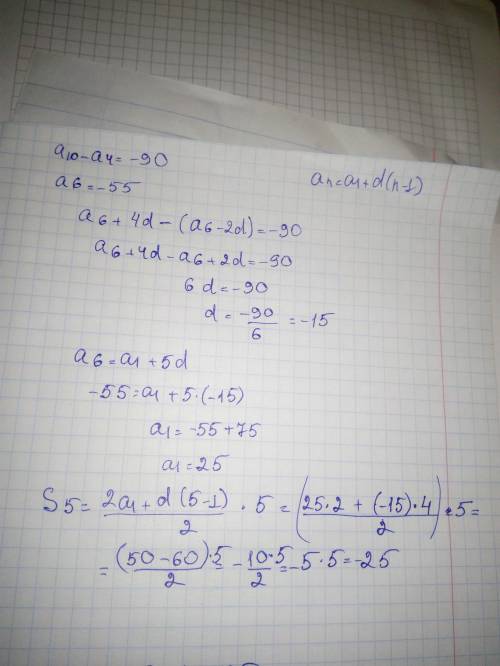 a10-a4=-90
an=a1+d(n-1)
a6=-55
a6+4d-(a6-2d)=-90
a6+4d-a6+2d=-90
6d=-90
d=-90/6=-15
a6=a1+5d
-55=a1+5·(-15)
a1=-55+75
a1=25
S5=(2a1+d(5-1))/2·5=((25·2+(-15)·4)/2)·5=
=(50-60)·5/2=-10·5/2=-5·5=-25